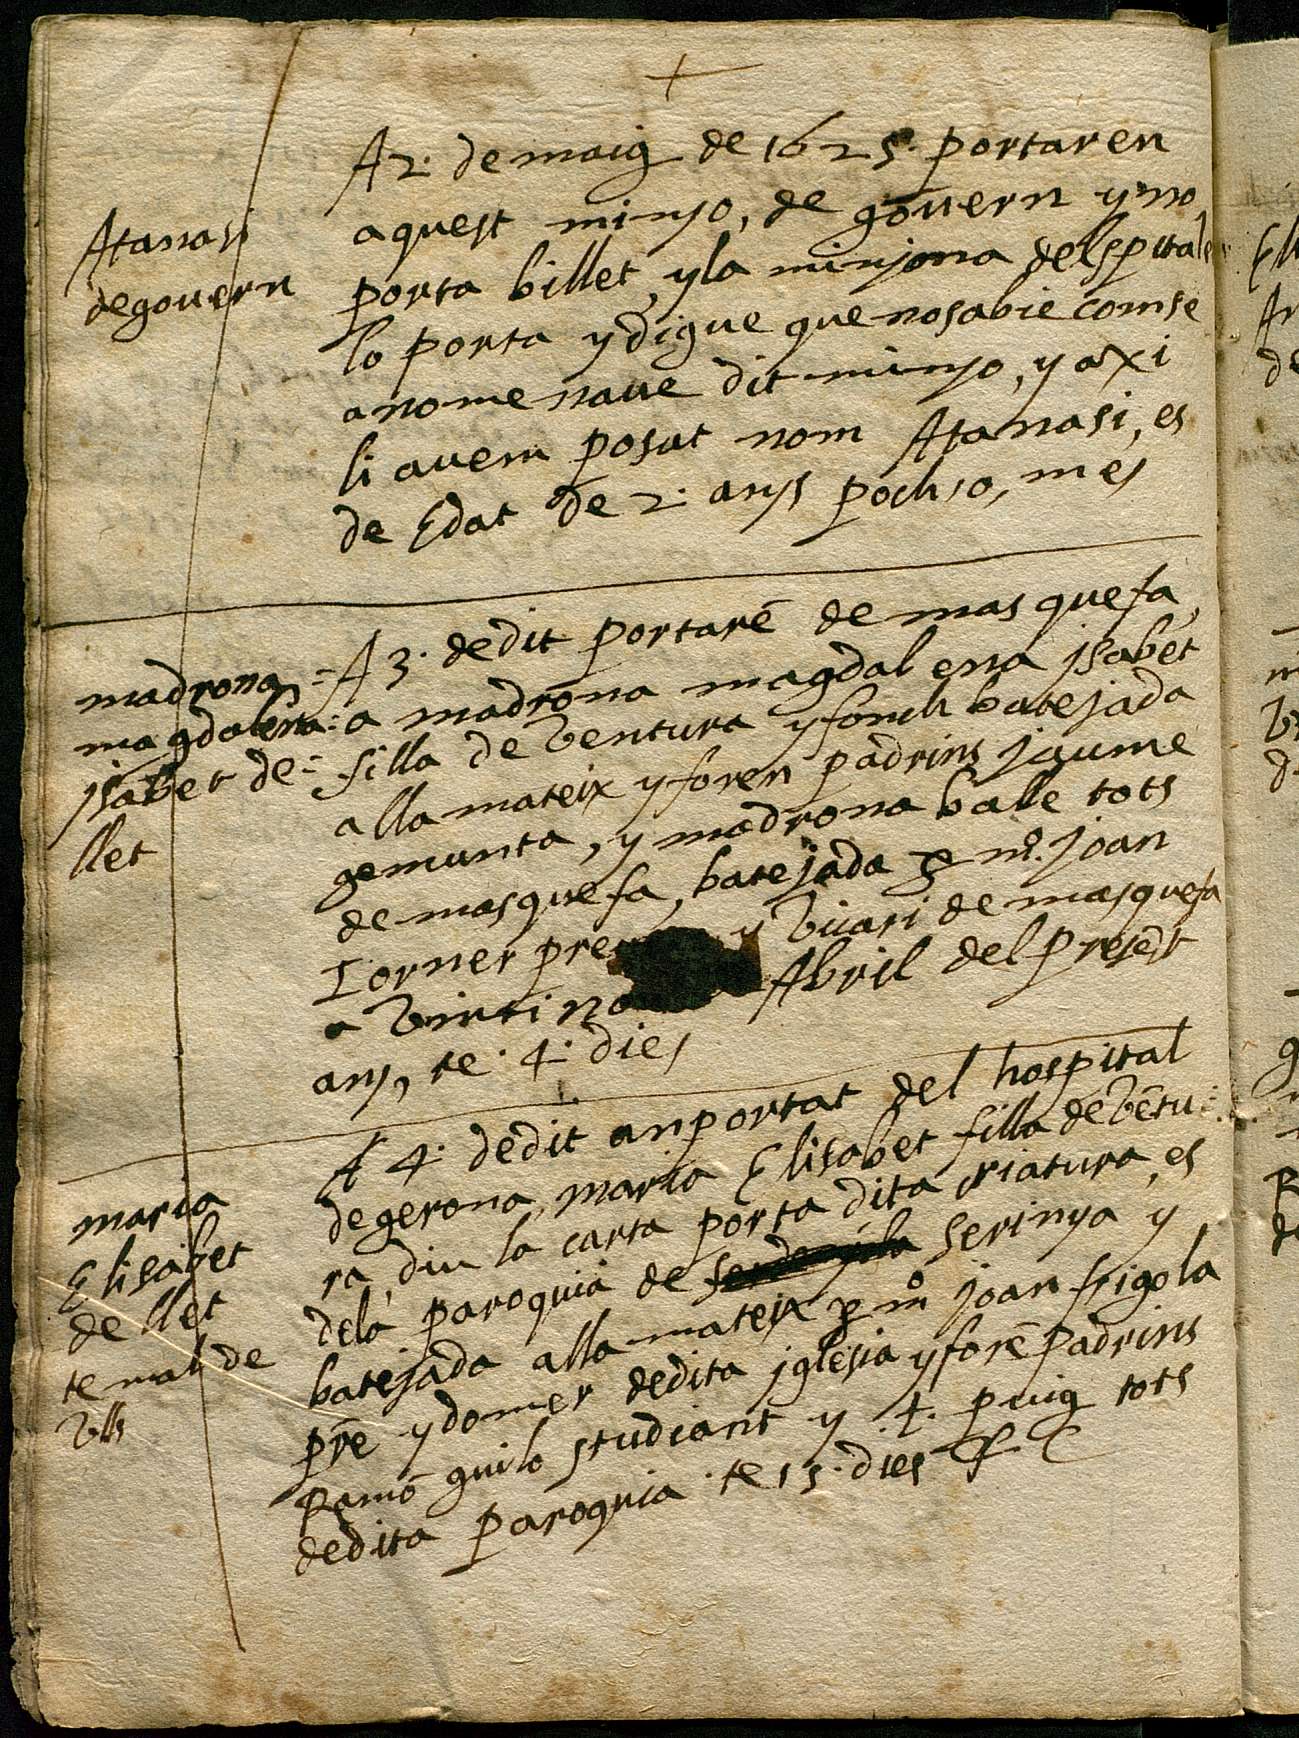 A 2. de maig de 1625. portaren
aquest minyo, de govern y no
porta billet, y la minyona delspital
lo porta y digue que no sabie com se
anomenaue dit minyo, y axi
li auem posat nom Atanasi, es
de Edat de 2. anys poch so, mes
Atanasi
de gouern
A 3. dedit portarē de mas quefa,
a madrona magdalena jsabet
filla de Ventura y fonch batejada
alla mateix y foren padrins jaume
gemunta, y madrona balle tots
de masquefa, batejada per mº. joan
Torner pre y Vicari de masquefa
a Vinti no Abril del presēt
any, te. 4. dies
madrona =
magdalena =
jsabet de =
llet
A 4. dedit an portat del hospital
de gerona, maria Elisabet filla de Vētu
ra, diu la carta porta dita criatura, es
dela paroquia de Serinya y
batejada alla mateix per mº joan frigola
pre y domer dedita jglesia y forē padrins
Ramō guilo studiant y 4. puig tots
dedita paroquia. te 15. dies
maria
Elisabet
de llet
te mal de
Vlls